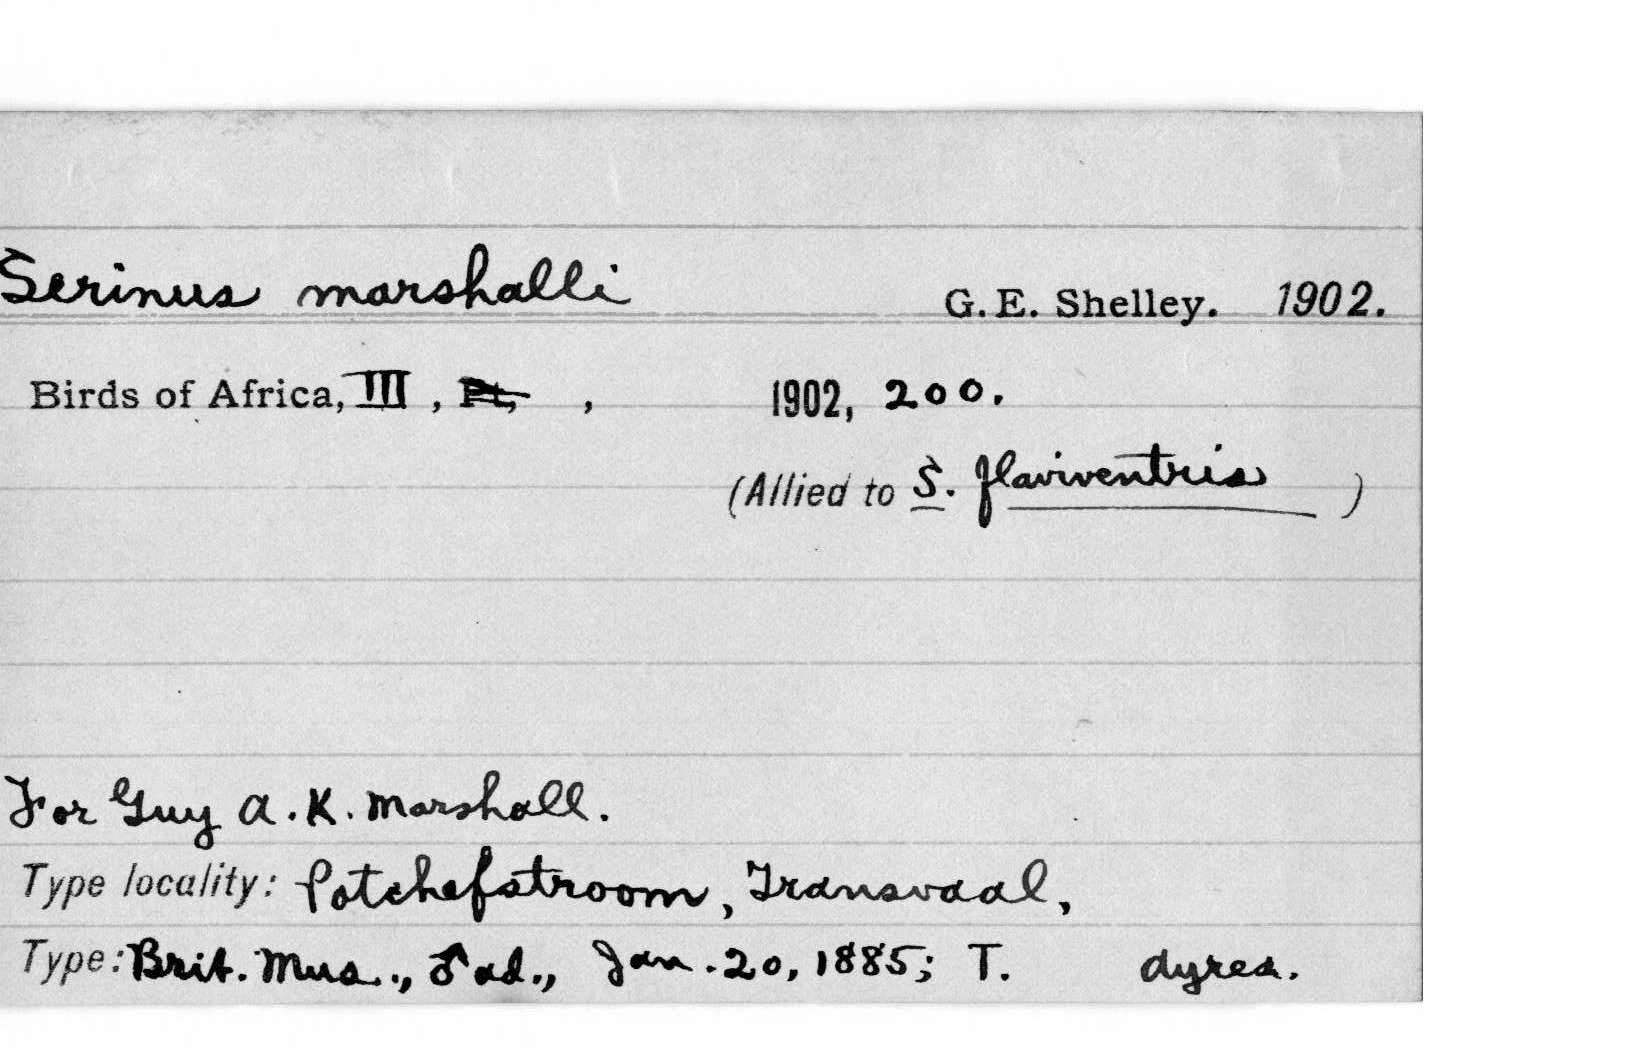 Serinus marshalli G. E. Shelley. 1902.
Birds of Africa, III , Pt, , 1902, 200.
(Allied to S. flaviventris )
For Guy A. K. Marshall.
Type locality: Potchefstroom, Transvaal,
Type: Brit. Mus., ♂ ad., Jan. 20, 1885; T. dyres.